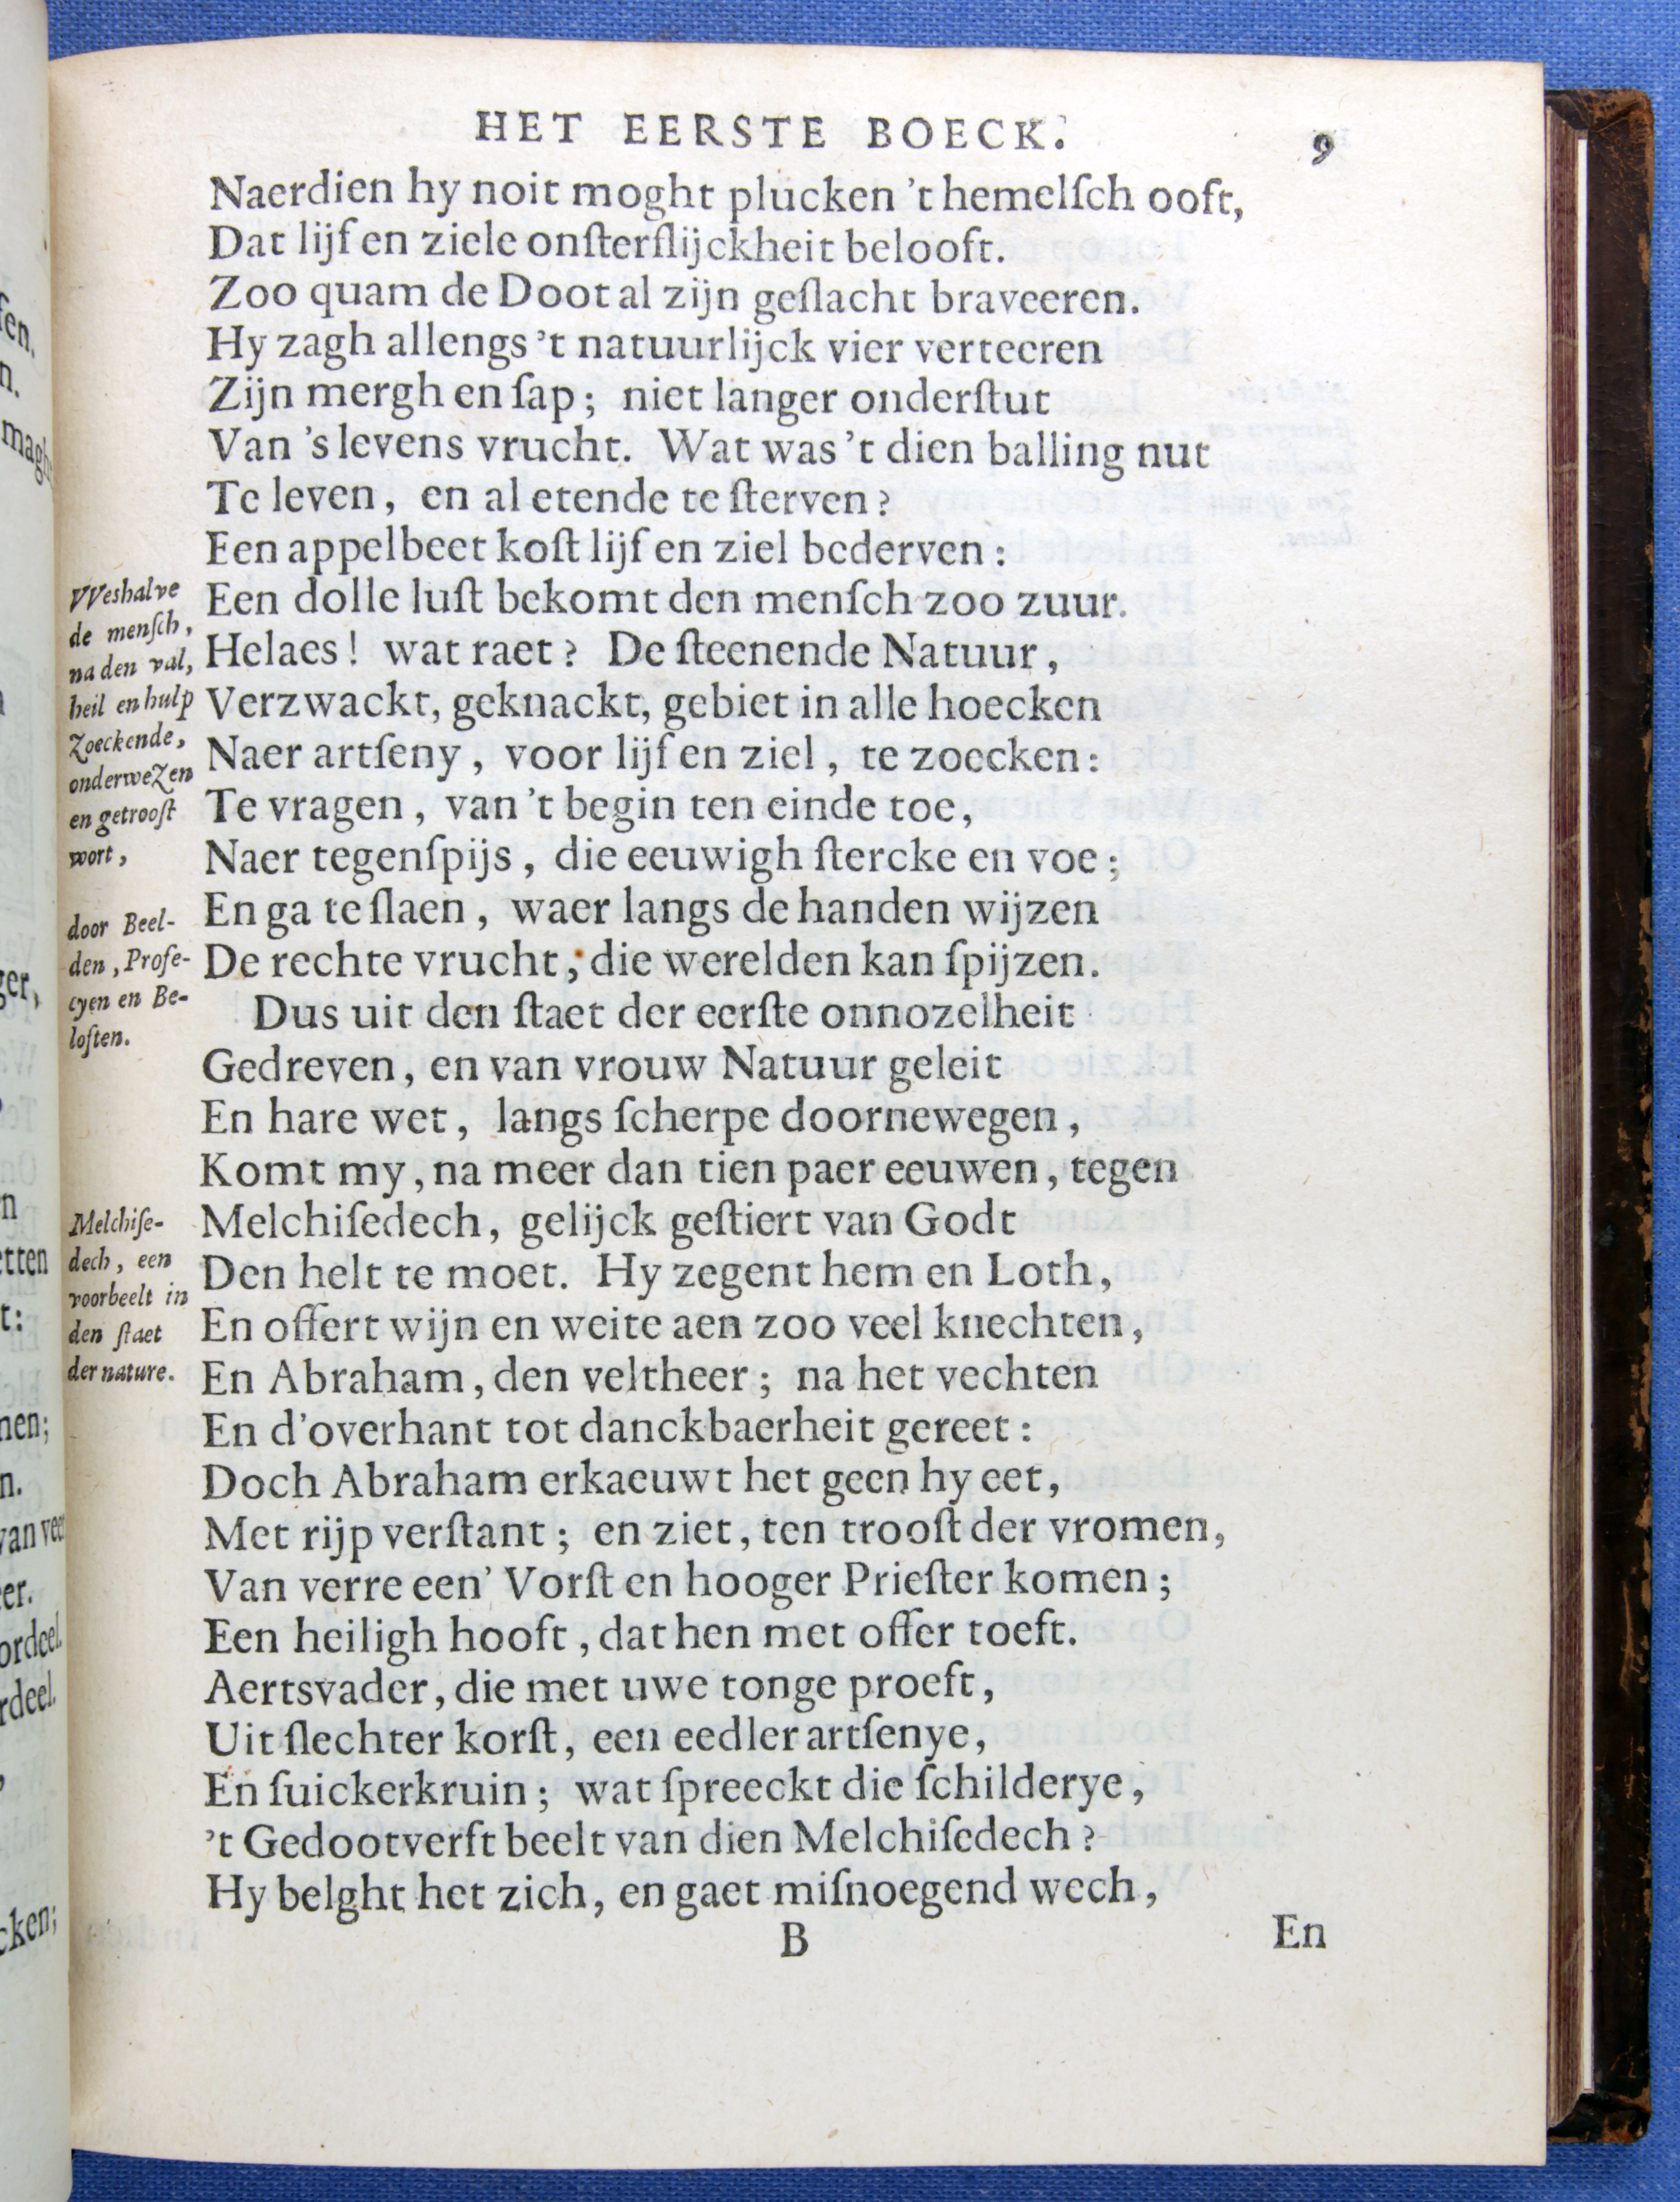 HET EERSTE BOECK. 9
Naerdien hy noit moght plucken 't hemelſch ooft,
Dat lijf en ziele onſterflijckheit belooft.
Zoo quam de Doot al zijn geſlacht braveeren.
Hy zagh allengs 't natuurlijck vier verteeren
Zijn mergh en ſap; niet langer onderſtut
Van 's levens vrucht. Wat was 't dien balling nut
Te leven, en al etende te ſterven?
Een appelbeet koſt lijf en ziel bederven:
Een dolle luſt bekomt den menſch zoo zuur.
Helaes! wat raet? De ſteenende Natuur,
Verzwackt, geknackt, gebiet in alle hoecken
Naer artſeny, voor lijf en ziel, te zoecken:
Te vragen, van 't begin ten einde toe,
Naer tegenſpijs, die eeuwigh ſtercke en voe;
En ga te ſlaen, waer langs de handen wijzen
De rechte vrucht, die werelden kan ſpijzen.
Dus uit den ſtaet der eerſte onnozelheit
Gedreven, en van vrouw Natuur geleit
En hare wet, langs ſcherpe doornewegen,
Komt my, na meer dan tien paer eeuwen, tegen
Melchiſedech, gelijck geſtiert van Godt
Den helt te moet. Hy zegent hem en Loth,
En offert wijn en weite aen zoo veel knechten,
En Abraham, den veltheer; na het vechten
En d'overhant tot danckbaerheit gereet:
Doch Abraham erkaeuwt het geen hy eet,
Met rijp verſtant; en ziet, ten trooſt der vromen,
Van verre een' Vorſt en hooger Prieſter komen;
Een heiligh hooft, dat hen met offer toeft.
Aertsvader, die met uwe tonge proeft,
Uit ſlechter korſt, een eedler artſenye,
En ſuickerkruin; wat ſpreeckt die ſchilderye,
't Gedootverft beelt van dien Melchiſedech?
Hy belght het zich, en gaet miſnoegend wech,
B En
VVeshalve
de menſch,
na den val,
heil en hulp
zoeckende,
onderwezen
en getrooſt
wort,
door Beel-
den, Profe-
cyen en Be-
loften.
Melchiſe-
dech, een
voorbeelt in
den ſtaet
der nature.